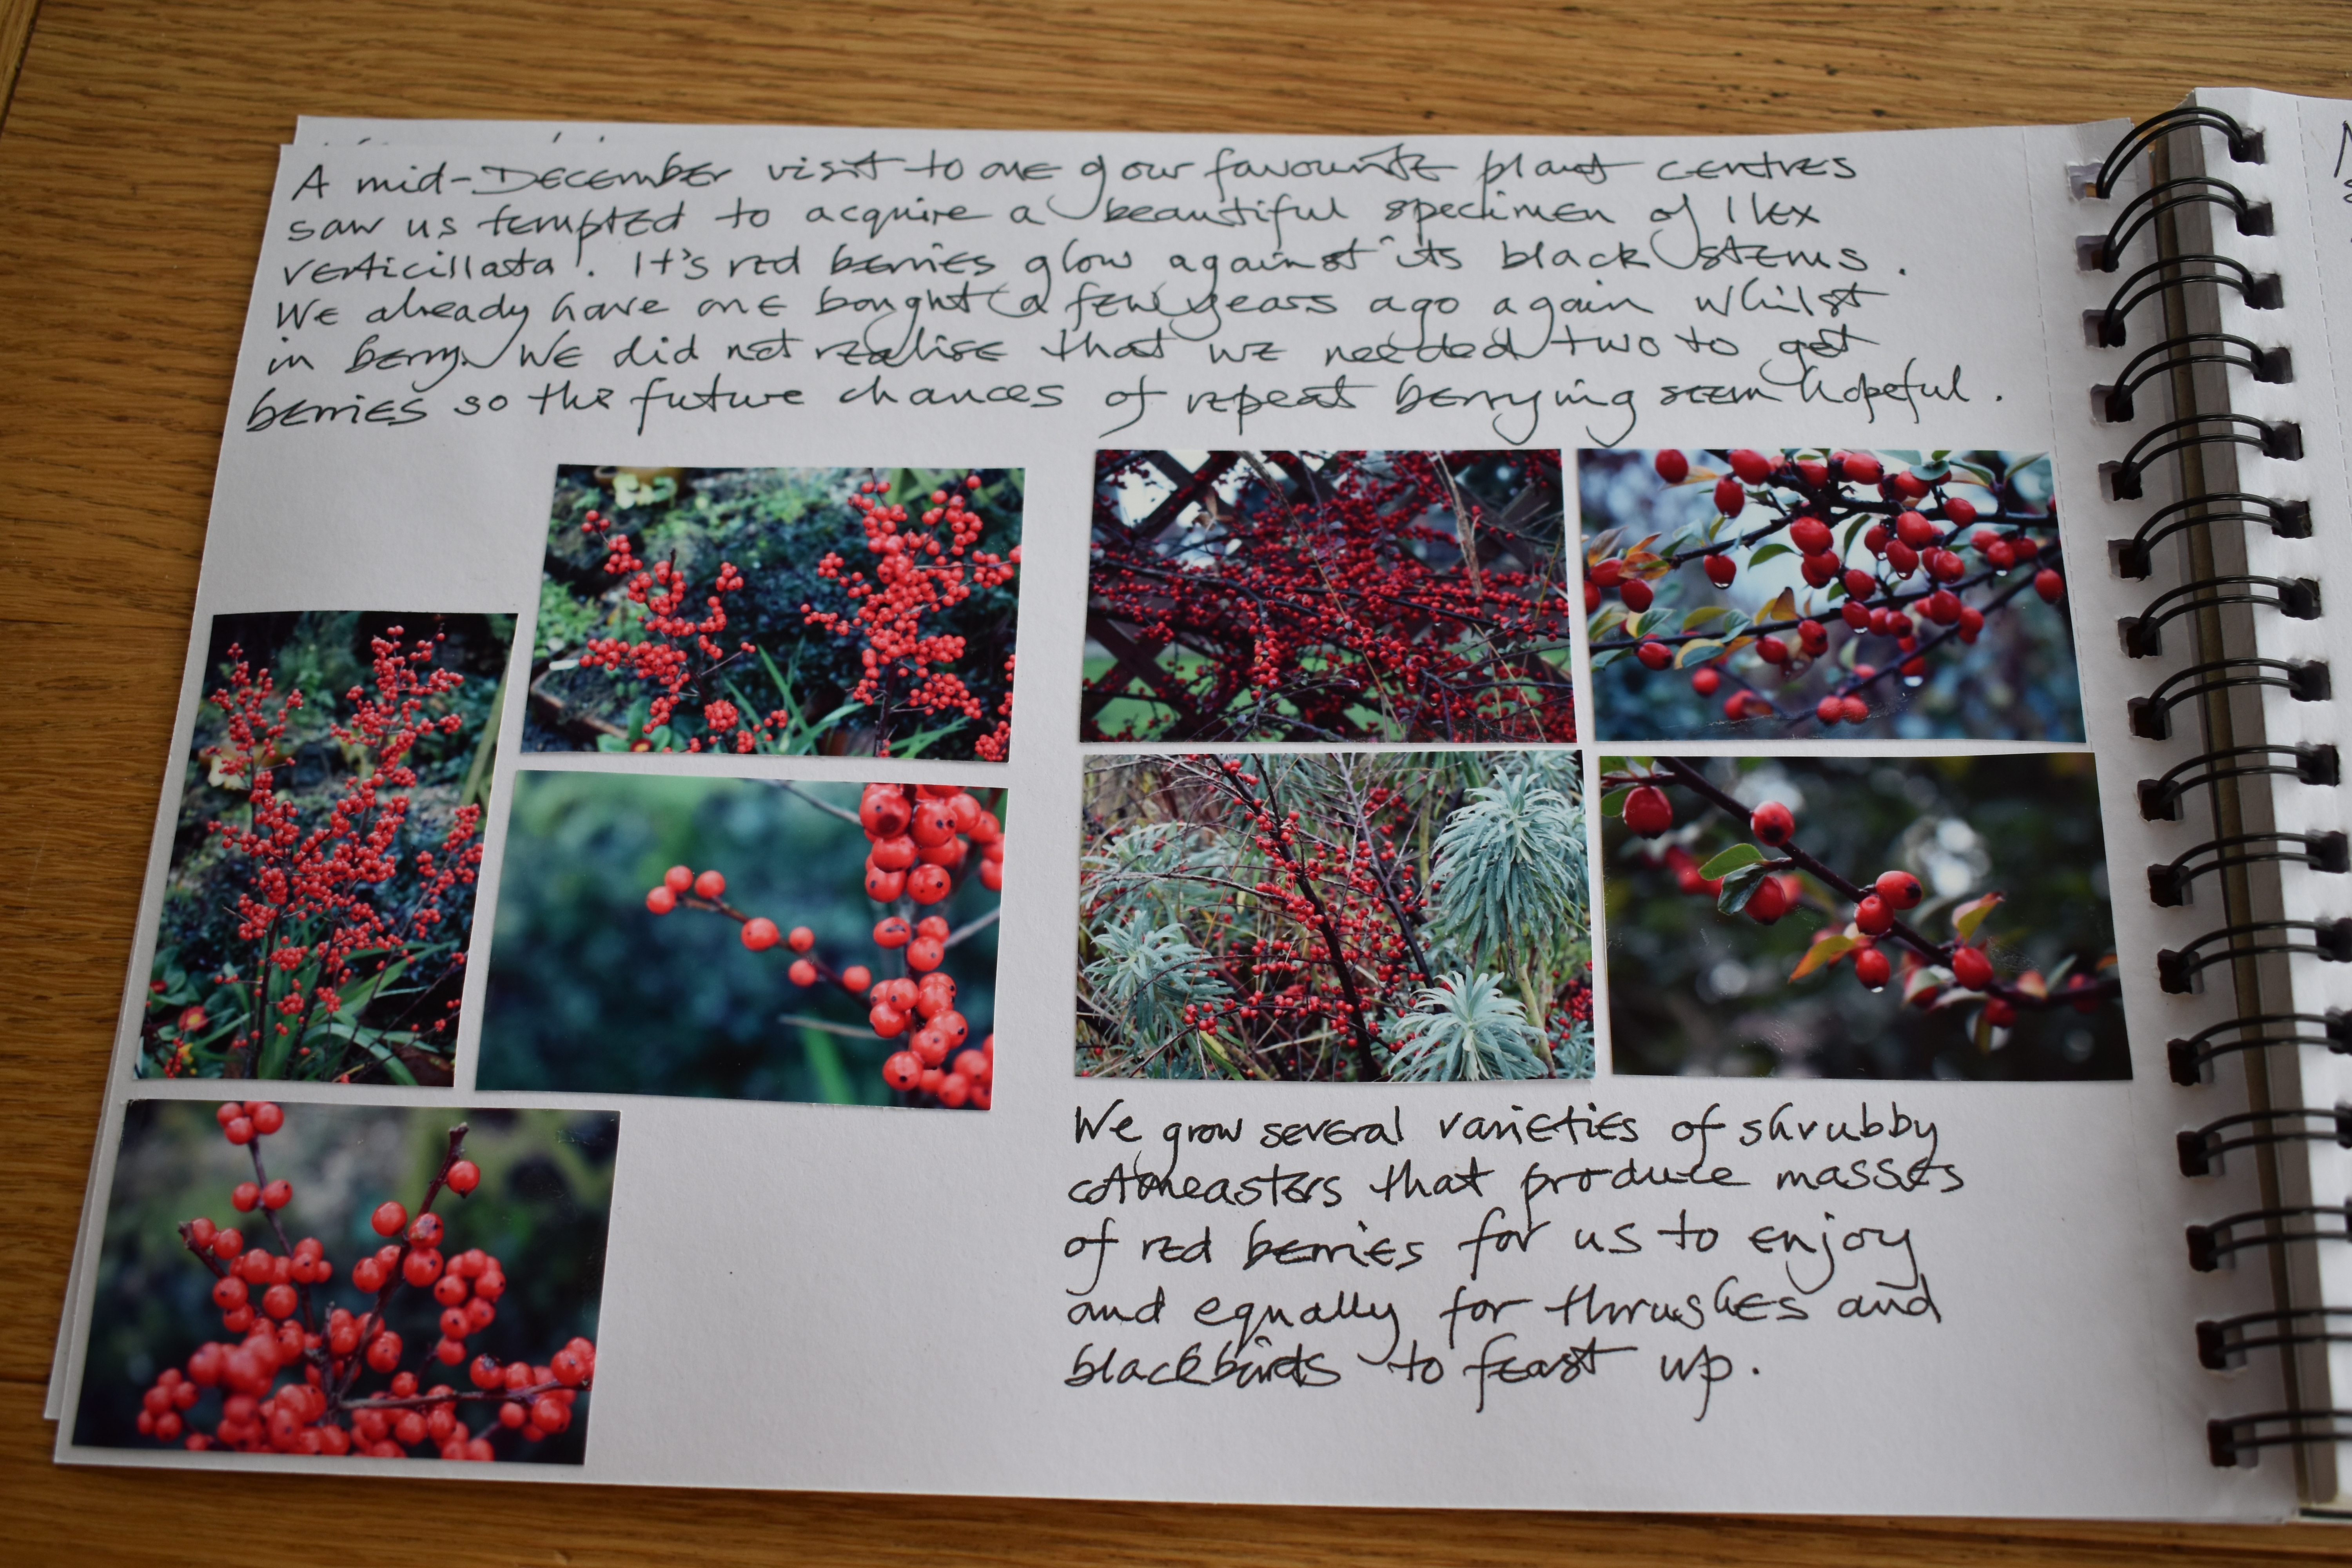 A mid-December visit to one of our favourite plant centres
saw us tempted to acquire a beautiful specimen of Ilex
verticillata. It's red berries glow against its black stems.
We already have one bought a few years ago again whilst
in berry. We did not realise that we needed two to get
berries so the future chances of repeat berrying seem hopeful.
We grow several varieties of shrubby
cotoneasters that produce masses
of red berries for us to enjoy
and equally for thrushes and
blackbirds to feast up.